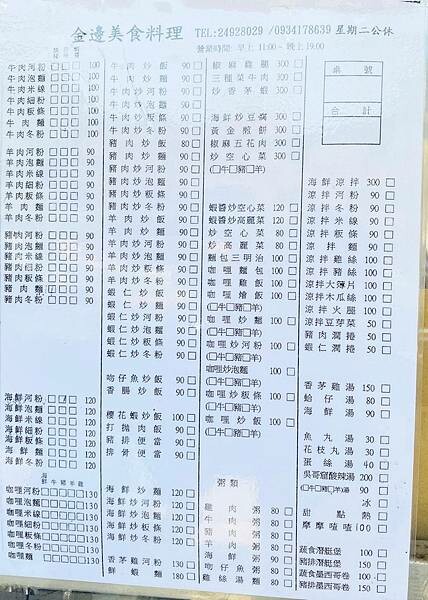 金邊美食料理 TEL:24928029 /0934178639 星期二公休
營業時間: 早上 11:00~ 晚上 19:00
牛肉河粉 □□□ 100
牛肉泡麵 □□□ 100
牛肉米線 □□□ 100
牛肉細粉 □□□ 100
牛肉板條 □□□ 100
牛肉麵 □□□ 100
牛肉冬粉 □□□ 100
羊肉河粉 □□□ 90
羊肉泡麵 □□□ 90
羊肉米線 □□□ 90
羊肉細粉 □□□ 90
羊肉板條 □□□ 90
羊肉麵 □□□ 90
羊肉冬粉 □□□ 90
豬肉河粉 □□□ 90
豬肉泡麵 □□□ 90
豬肉米線 □□□ 90
豬肉細粉 □□□ 90
豬肉板條 □□□ 90
豬肉麵 □□□ 90
豬肉冬粉 □□□ 90
海鮮河粉 120
海鮮泡麵 □□□ 120
海鮮米線 □□□ 120
海鮮細粉 □□□ 120
海鮮板條 □□□ 120
海鮮麵 □□□ 120
海鮮冬粉 □□□ 120
海鮮 牛 豬 羊 雞
咖哩河粉 □□□□□ 130
咖哩泡麵 □□□□□ 130
咖哩米線 □□□□□ 130
咖哩細粉 □□□□□ 130
咖哩板條 □□□□□ 130
咖哩冬粉 □□□□□ 130
咖哩麵 □□□□□ 130
牛肉炒飯 90 □
牛肉炒麵 100 □
牛肉炒河粉 100 □
牛肉炒泡麵 100 □
牛肉炒板條 100 □
牛肉炒冬粉 100 □
豬肉炒飯 80 □
豬肉炒麵 90 □
豬肉炒河粉 90 □
豬肉炒泡麵 90 □
豬肉炒板條 90 □
豬肉炒冬粉 90 □
羊肉炒飯 90 □
羊肉炒麵 90 □
羊肉炒河粉 90 □
羊肉炒泡麵 90 □
羊肉炒板條 90 □
羊肉炒冬粉 90 □
蝦仁炒飯 90 □
蝦仁炒麵 90 □
蝦仁炒河粉 90 □
蝦仁炒泡麵 90 □
蝦仁炒板條 90 □
蝦仁炒冬粉 90 □
吻仔魚炒飯 90 □
香腸炒飯 90 □
櫻花蝦炒飯 100 □
打拋肉飯 100 □
豬排便當 90 □
排骨便當 90 □
海鮮炒飯 120 □
海鮮炒麵 120 □
海鮮炒河粉 120 □
海鮮炒泡麵 120 □
海鮮炒板條 120 □
海鮮炒冬粉 120 □
香茅雞河粉 130 □
鮮蝦麵 180 □
椒麻雞腿 300 □
三種菜牛肉 300 □
炒香茅蝦 300 □
海鮮炒豆腐 300 □
黃金煎餅 300 □
椒麻五花肉 300 □
炒空心菜 300 □
(□牛□豬□羊)
蝦醬炒空心菜 120 □
蝦醬炒高麗菜 120 □
炒空心菜 80 □
炒高麗菜 80 □
麵包三明治 100 □
咖哩麵包 100 □
咖哩雞飯 100 □
咖哩燴飯 100 □
(□牛□豬□羊)
咖哩炒麵 100 □
(□牛□豬□羊)
咖哩炒河粉 100 □
(□牛□豬□羊)
咖哩炒泡麵 100 □
(□牛□豬□羊)
咖哩炒板條 100 □
(□牛□豬□羊)
咖哩炒飯 100 □
(□牛□豬□羊)
粥類
雞肉粥 80 □
牛肉粥 80 □
豬肉粥 80 □
羊肉粥 80 □
海鮮粥 90 □
吻仔魚粥 80 □
雞絲湯麵 80 □
桌號
合計
海鮮涼拌 300 □
涼拌河粉 90 □
涼拌冬粉 90 □
涼拌米線 90 □
涼拌板條 90 □
涼拌麵 90 □
涼拌雞絲 100 □
涼拌豬絲 100 □
涼拌大薄片 100 □
涼拌木瓜絲 100 □
涼拌火腿 100 □
涼拌豆芽菜 50 □
豬肉潤捲 50 □
蝦仁潤捲 50 □
香茅雞湯 150 □
蛤仔湯 80 □
海鮮湯 90 □
魚丸湯 30 □
花枝丸湯 30 □
蛋絲湯 40 □
吳哥窟酸辣湯 200 □
(□牛□豬□羊)湯 90 □
冰 □
甜點熱 □
摩摩喳喳 100 □
蔬食潛艇堡 100 □
豬排潛艇堡 150 □
蔬食墨西哥卷 100 □
豬排墨西哥卷 150 □